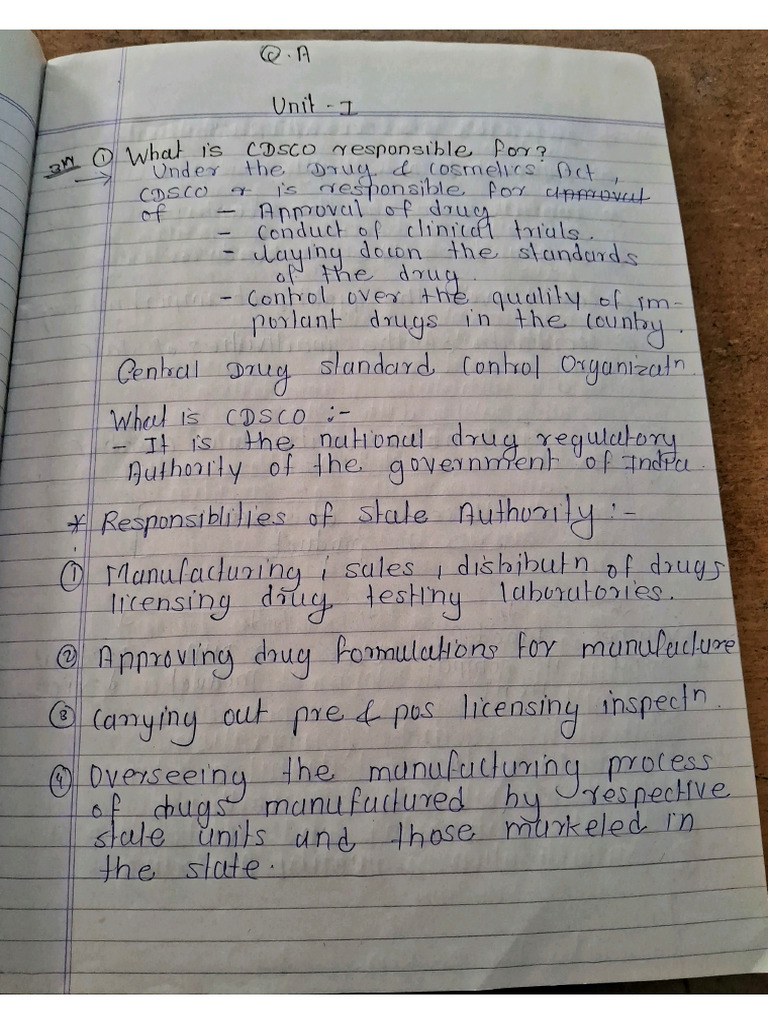 Q.A
Unit - I
3M ① What is CDSCO responsible for?
→ Under the Drug & Cosmetics Act,
CDSCO is responsible for approval
of - Approval of drug
- Conduct of clinical trials.
- Laying down the standards
of the drug.
- Control over the quality of im-
portant drugs in the country.
Central Drug standard Control Organizatn
What is CDSCO :-
- It is the national drug regulatory
Authority of the government of India.
* Responsiblities of State Authority :-
① Manufacturing, sales, distributn of drugs
licensing drug testing laboratories.
② Approving drug formulations for manufacture
③ Carrying out pre & pos licensing inspectn.
④ Overseeing the manufacturing process
of drugs manufactured by respective
state units and those marketed in
the state.